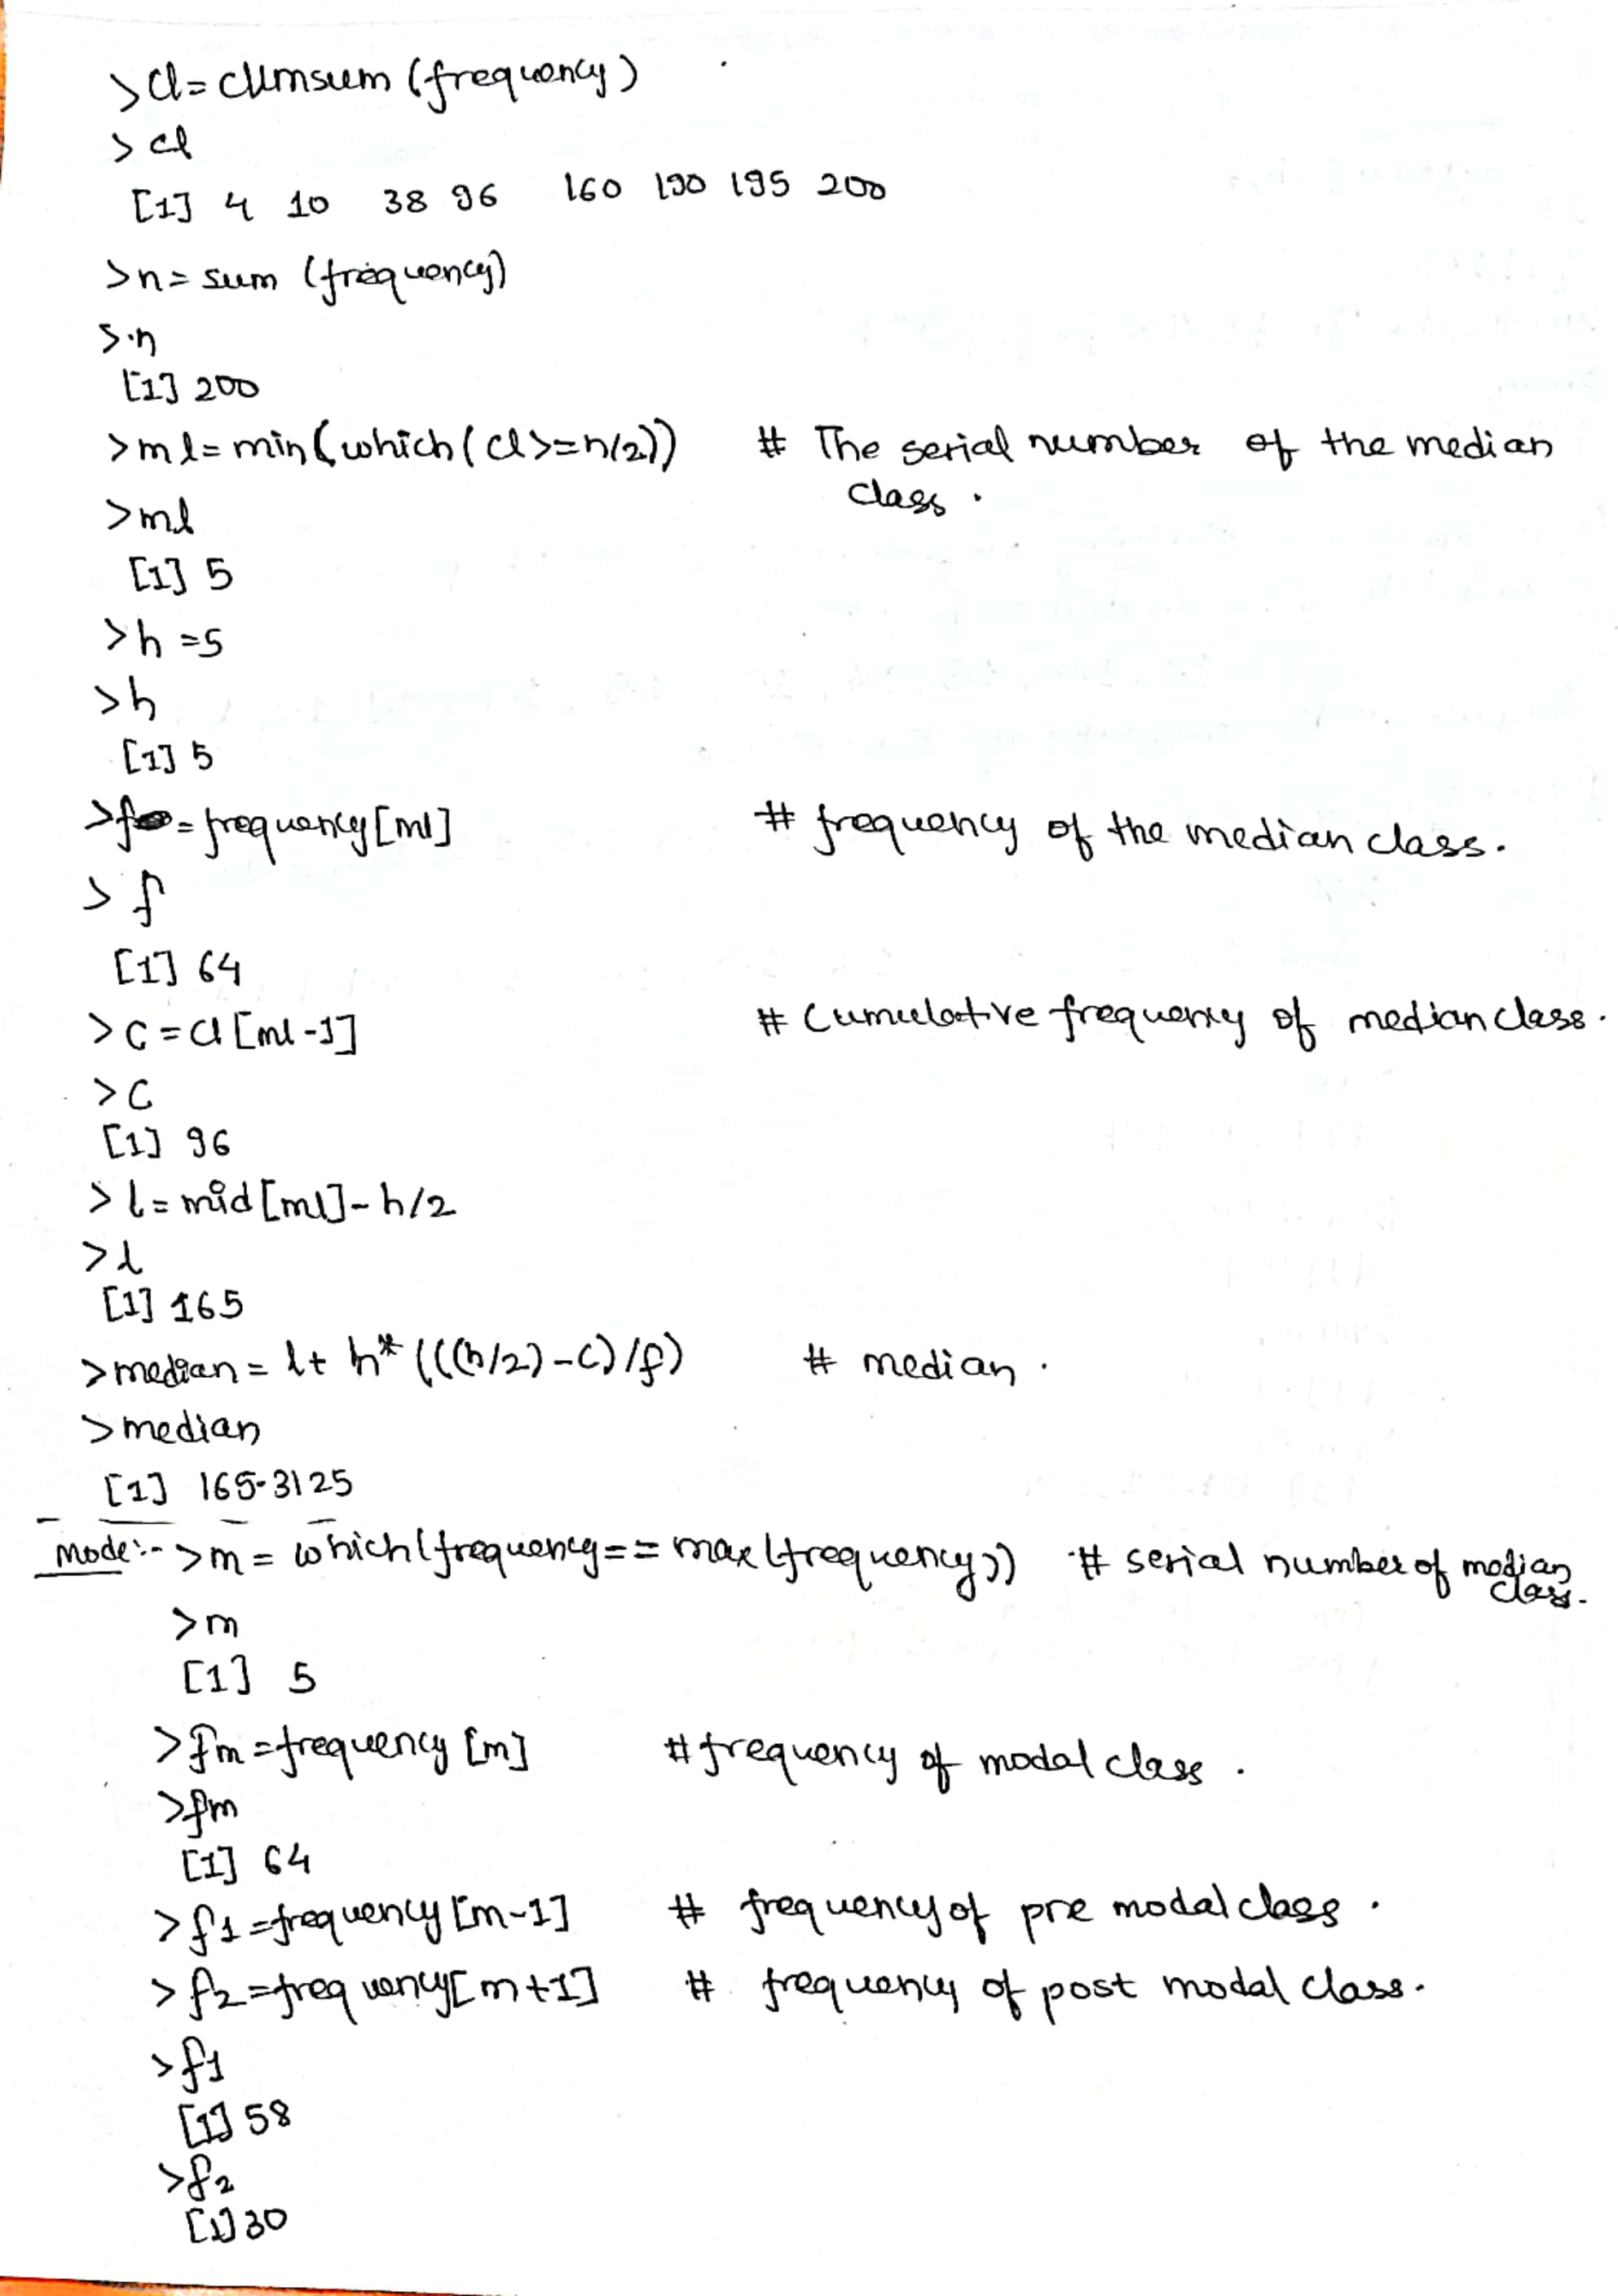 >cl=cumsum (frequency)
>cl
[1] 4 10 38 96 160 190 195 200
>n= sum (frequency)
>n
[1] 200
>ml= min(which(cl>=n/2)) # The serial number of the median
class.
>ml
[1] 5
>h =5
>h
[1] 5
>f = frequency[ml] # frequency of the median class.
>f
[1] 64
>C = cl [ml-1] # Cumulative frequency of median class.
>C
[1] 96
>l= mid[ml]-h/2
>l
[1] 165
>median = l+ h* (((n/2)-C)/f) # median.
>median
[1] 165.3125
Mode:- >m = which(frequency== max(frequency)) # serial number of median
class.
>m
[1] 5
>fm=frequency [m] #frequency of modal class.
>fm
[1] 64
>f1=frequency [m-1] # frequency of pre modal class.
>f2=frequency[m+1] # frequency of post modal class.
>f1
[1] 58
>f2
[1] 30